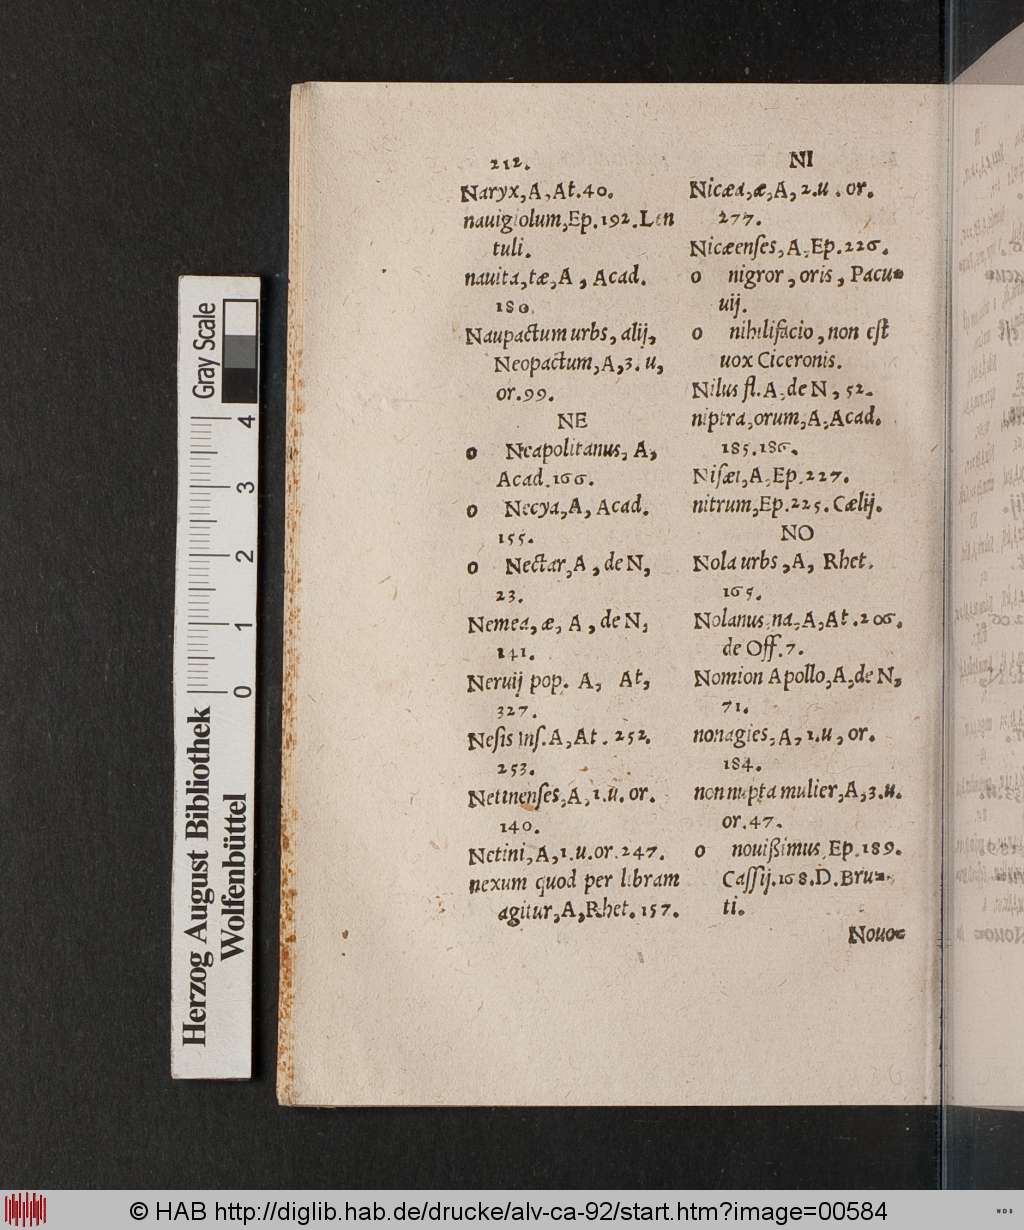 212.
Naryx, A, At. 40.
nauigiolum, Ep. 192. Len
tuli.
nauita, tæ, A, Acad.
180.
Naupactum urbs, alij,
Neopactum, A, 3. u,
or. 99.
NE
o Neapolitanus, A,
Acad. 166.
o Necya, A, Acad.
155.
o Nectar, A, de N,
23.
Nemea, æ, A, de N,
141.
Neruij pop. A, At,
327.
Nesis Ins. A, At. 252.
253.
Netinenses, A, 1. u. or.
140.
Netini, A, 1. u. or. 247.
nexum quod per libram
agitur, A, Rhet. 157.
NI
Nicæa, æ, A, 2. u. or.
277.
Nicæenses, A, Ep. 226.
o nigror, oris, Pacu-
uij.
o nihilifacio, non est
uox Ciceronis.
Nilus fl. A, de N, 52.
niptra, orum, A, Acad.
185. 186.
Nisæi, A, Ep. 227.
nitrum, Ep. 225. Cælij.
NO
Nola urbs, A, Rhet.
165.
Nolanus, na, A, At. 206.
de Off. 7.
Nomion Apollo, A, de N,
71.
nonagies, A, 1. u, or.
184.
non nupta mulier, A, 3. u.
or. 47.
o nouißimus, Ep. 189.
Cassij. 168. D. Bru-
ti.
Nouo-
Herzog August Bibliothek
Wolfenbüttel
Gray Scale
0 1 2 3 4
© HAB http://diglib.hab.de/drucke/alv-ca-92/start.htm?image=00584